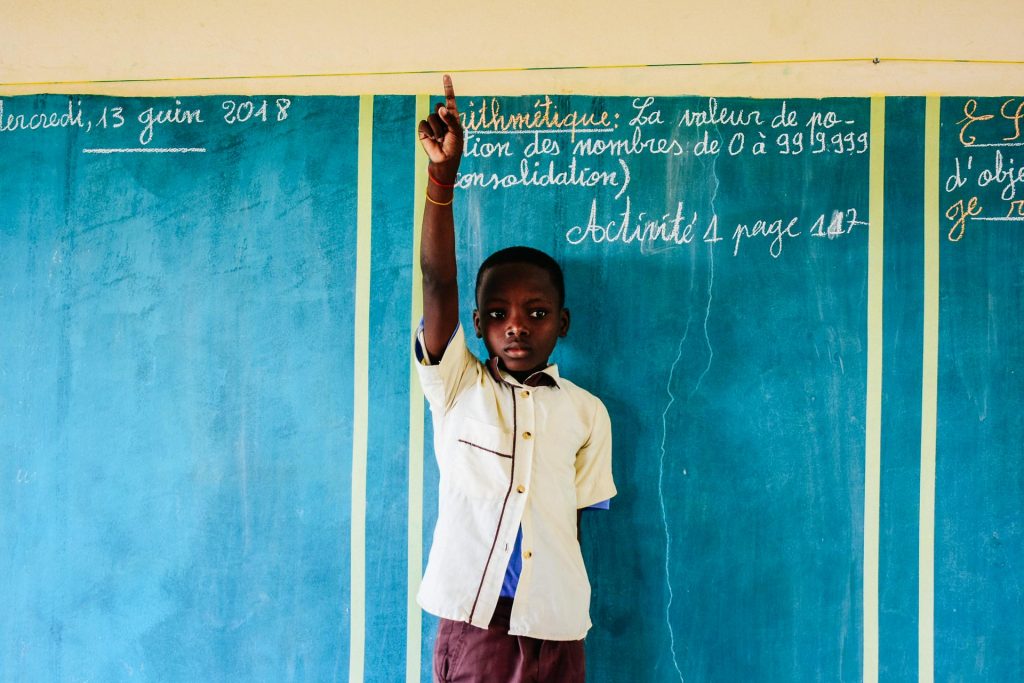 Mercredi, 13 juin 2018
rithmétique: La valeur de po-
tion des nombres de 0 à 999.999
consolidation)
Activité 1 page 117
E S
d'obje
je r